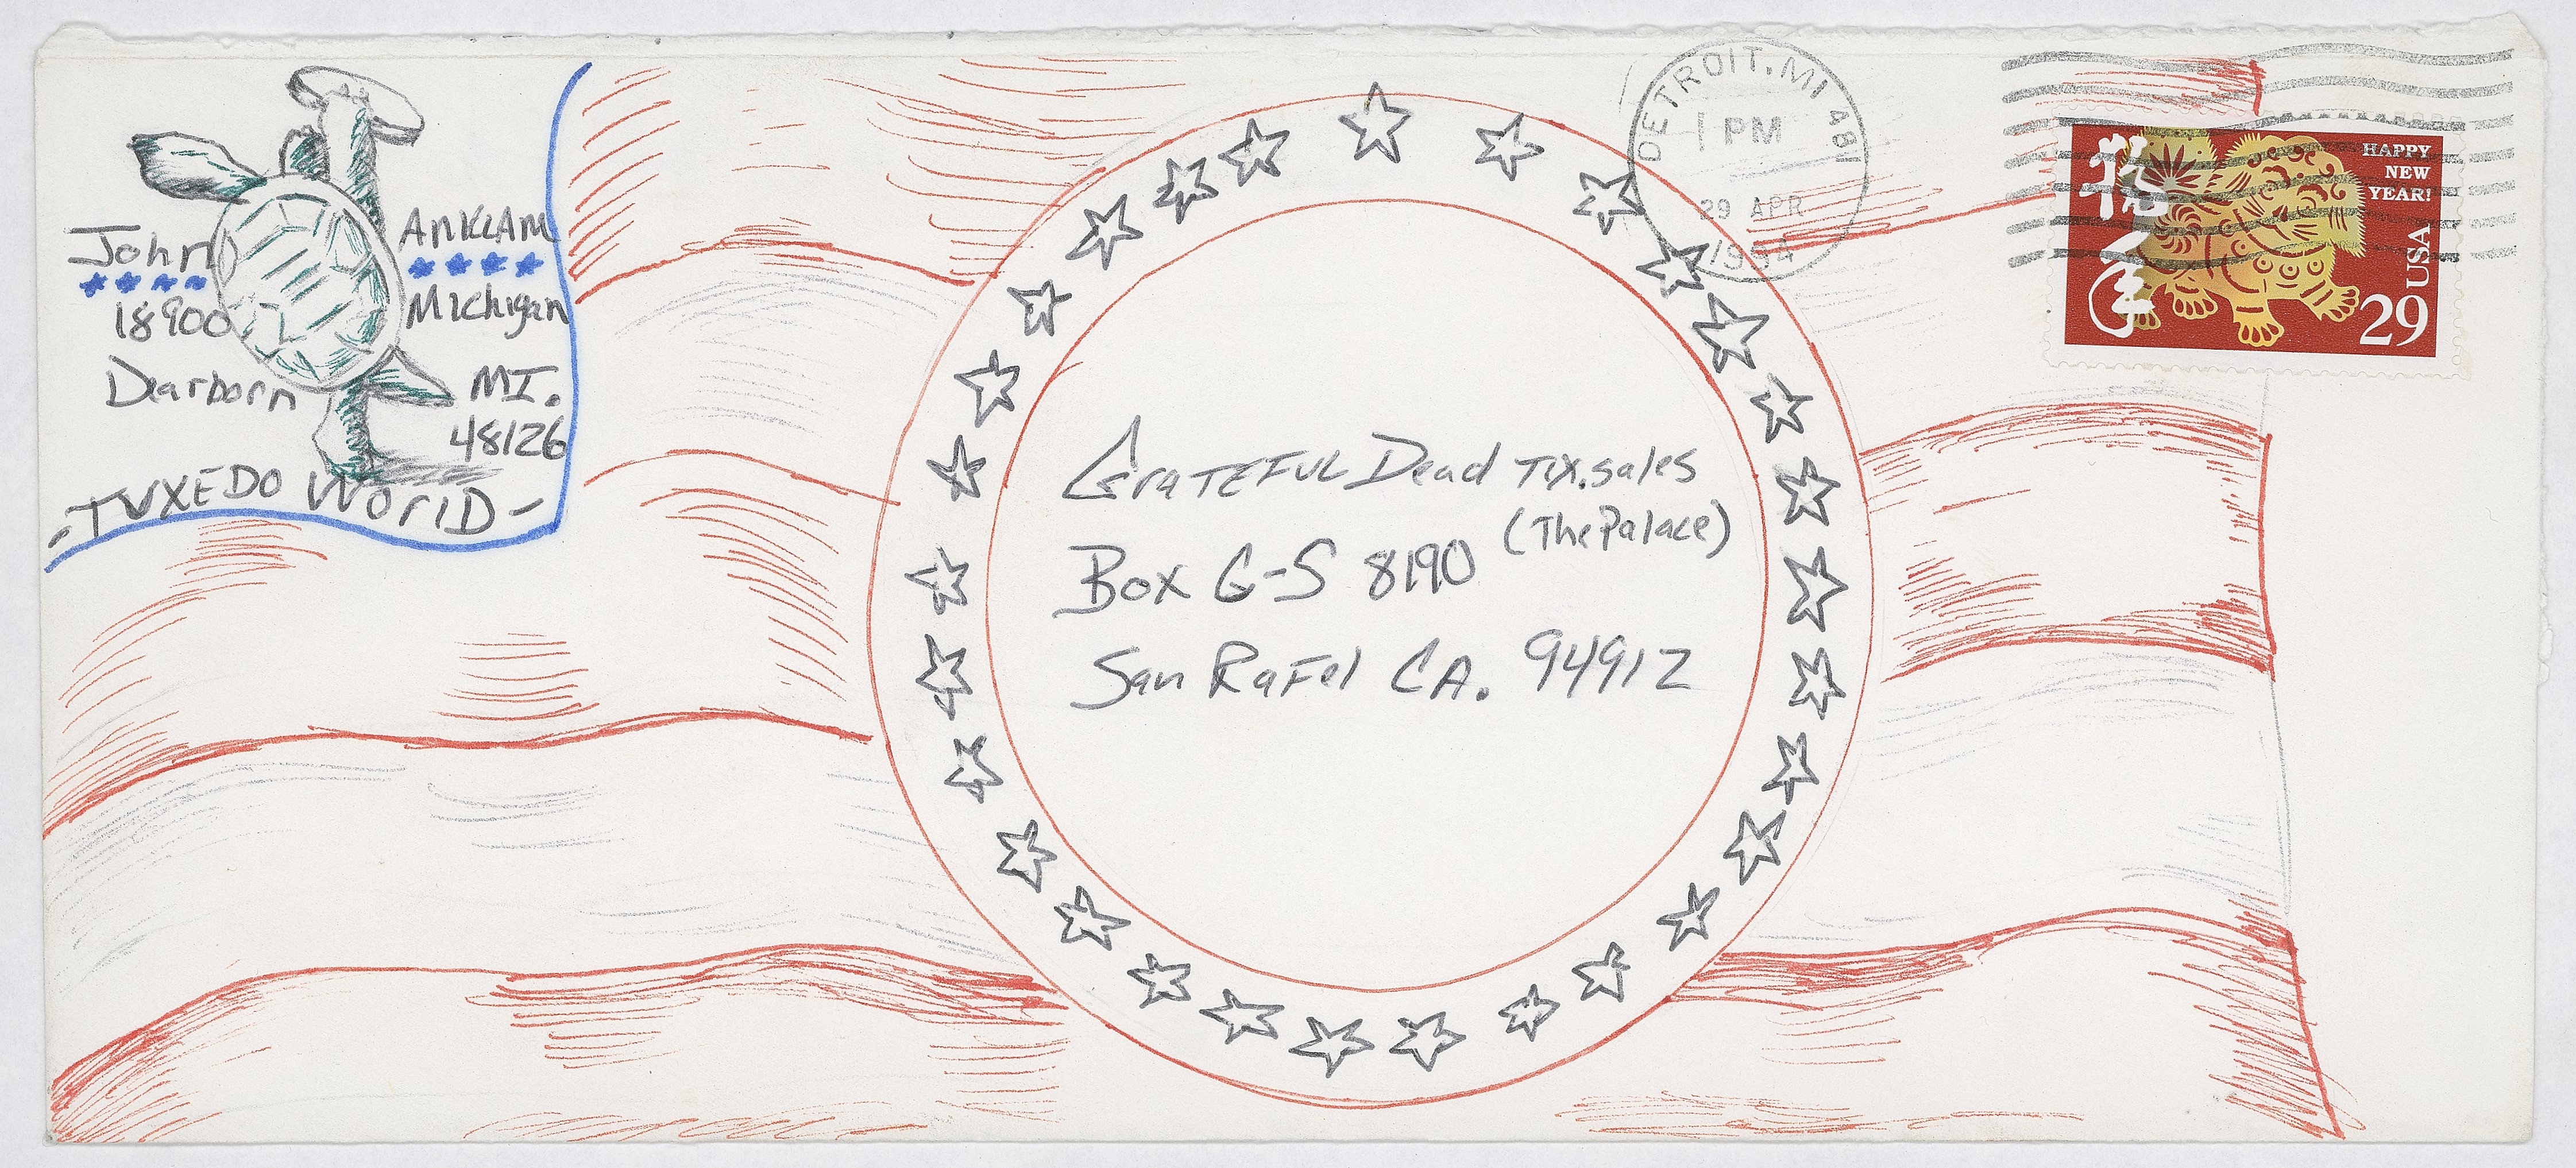 John Anklam
18900 Michigan
Dearborn MI.
48126
-TUXEDO World-
DETROIT, MI 481
PM
29 APR
1994
HAPPY
NEW
YEAR!
USA
29
Grateful Dead TIX. sales
(The Palace)
Box G-S 8190
San Rafel CA. 94912